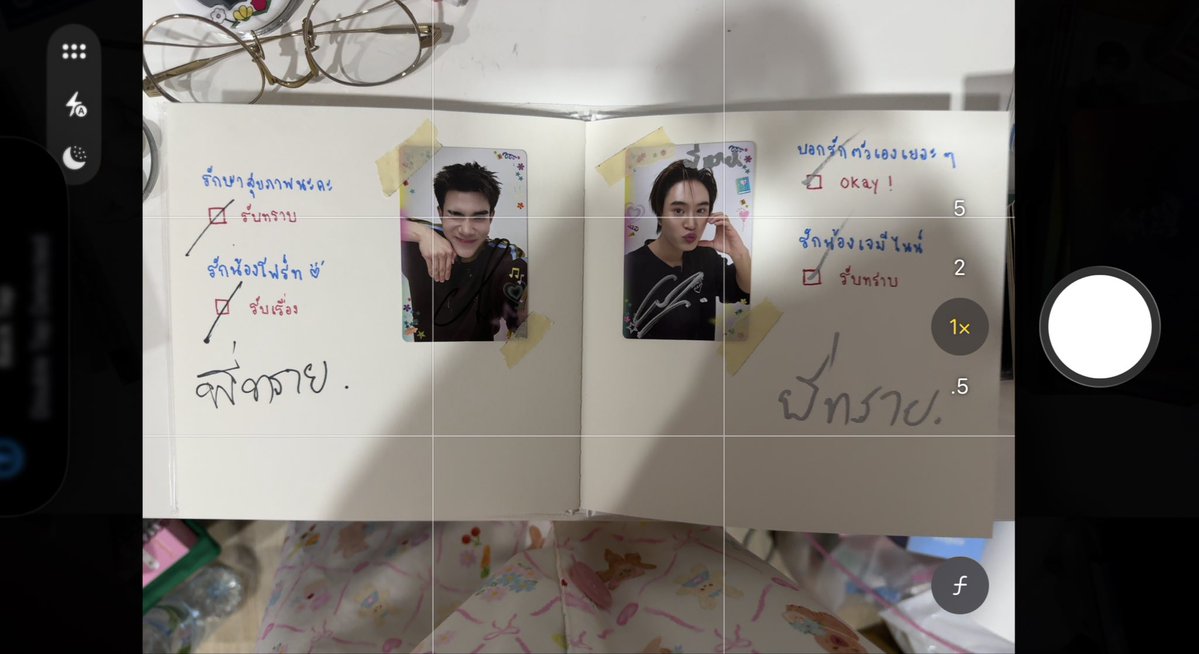 รักษาสุขภาพนะคะ
รับทราบ
รักน้องโฟร์ท
รับเรื่อง
พี่ทราย.
บอกรักตัวเองเยอะๆ
OKay !
รักน้องเจมีไนน์
รับทราบ
พี่ทราย.
พี่ทราย
5
2
1×
.5